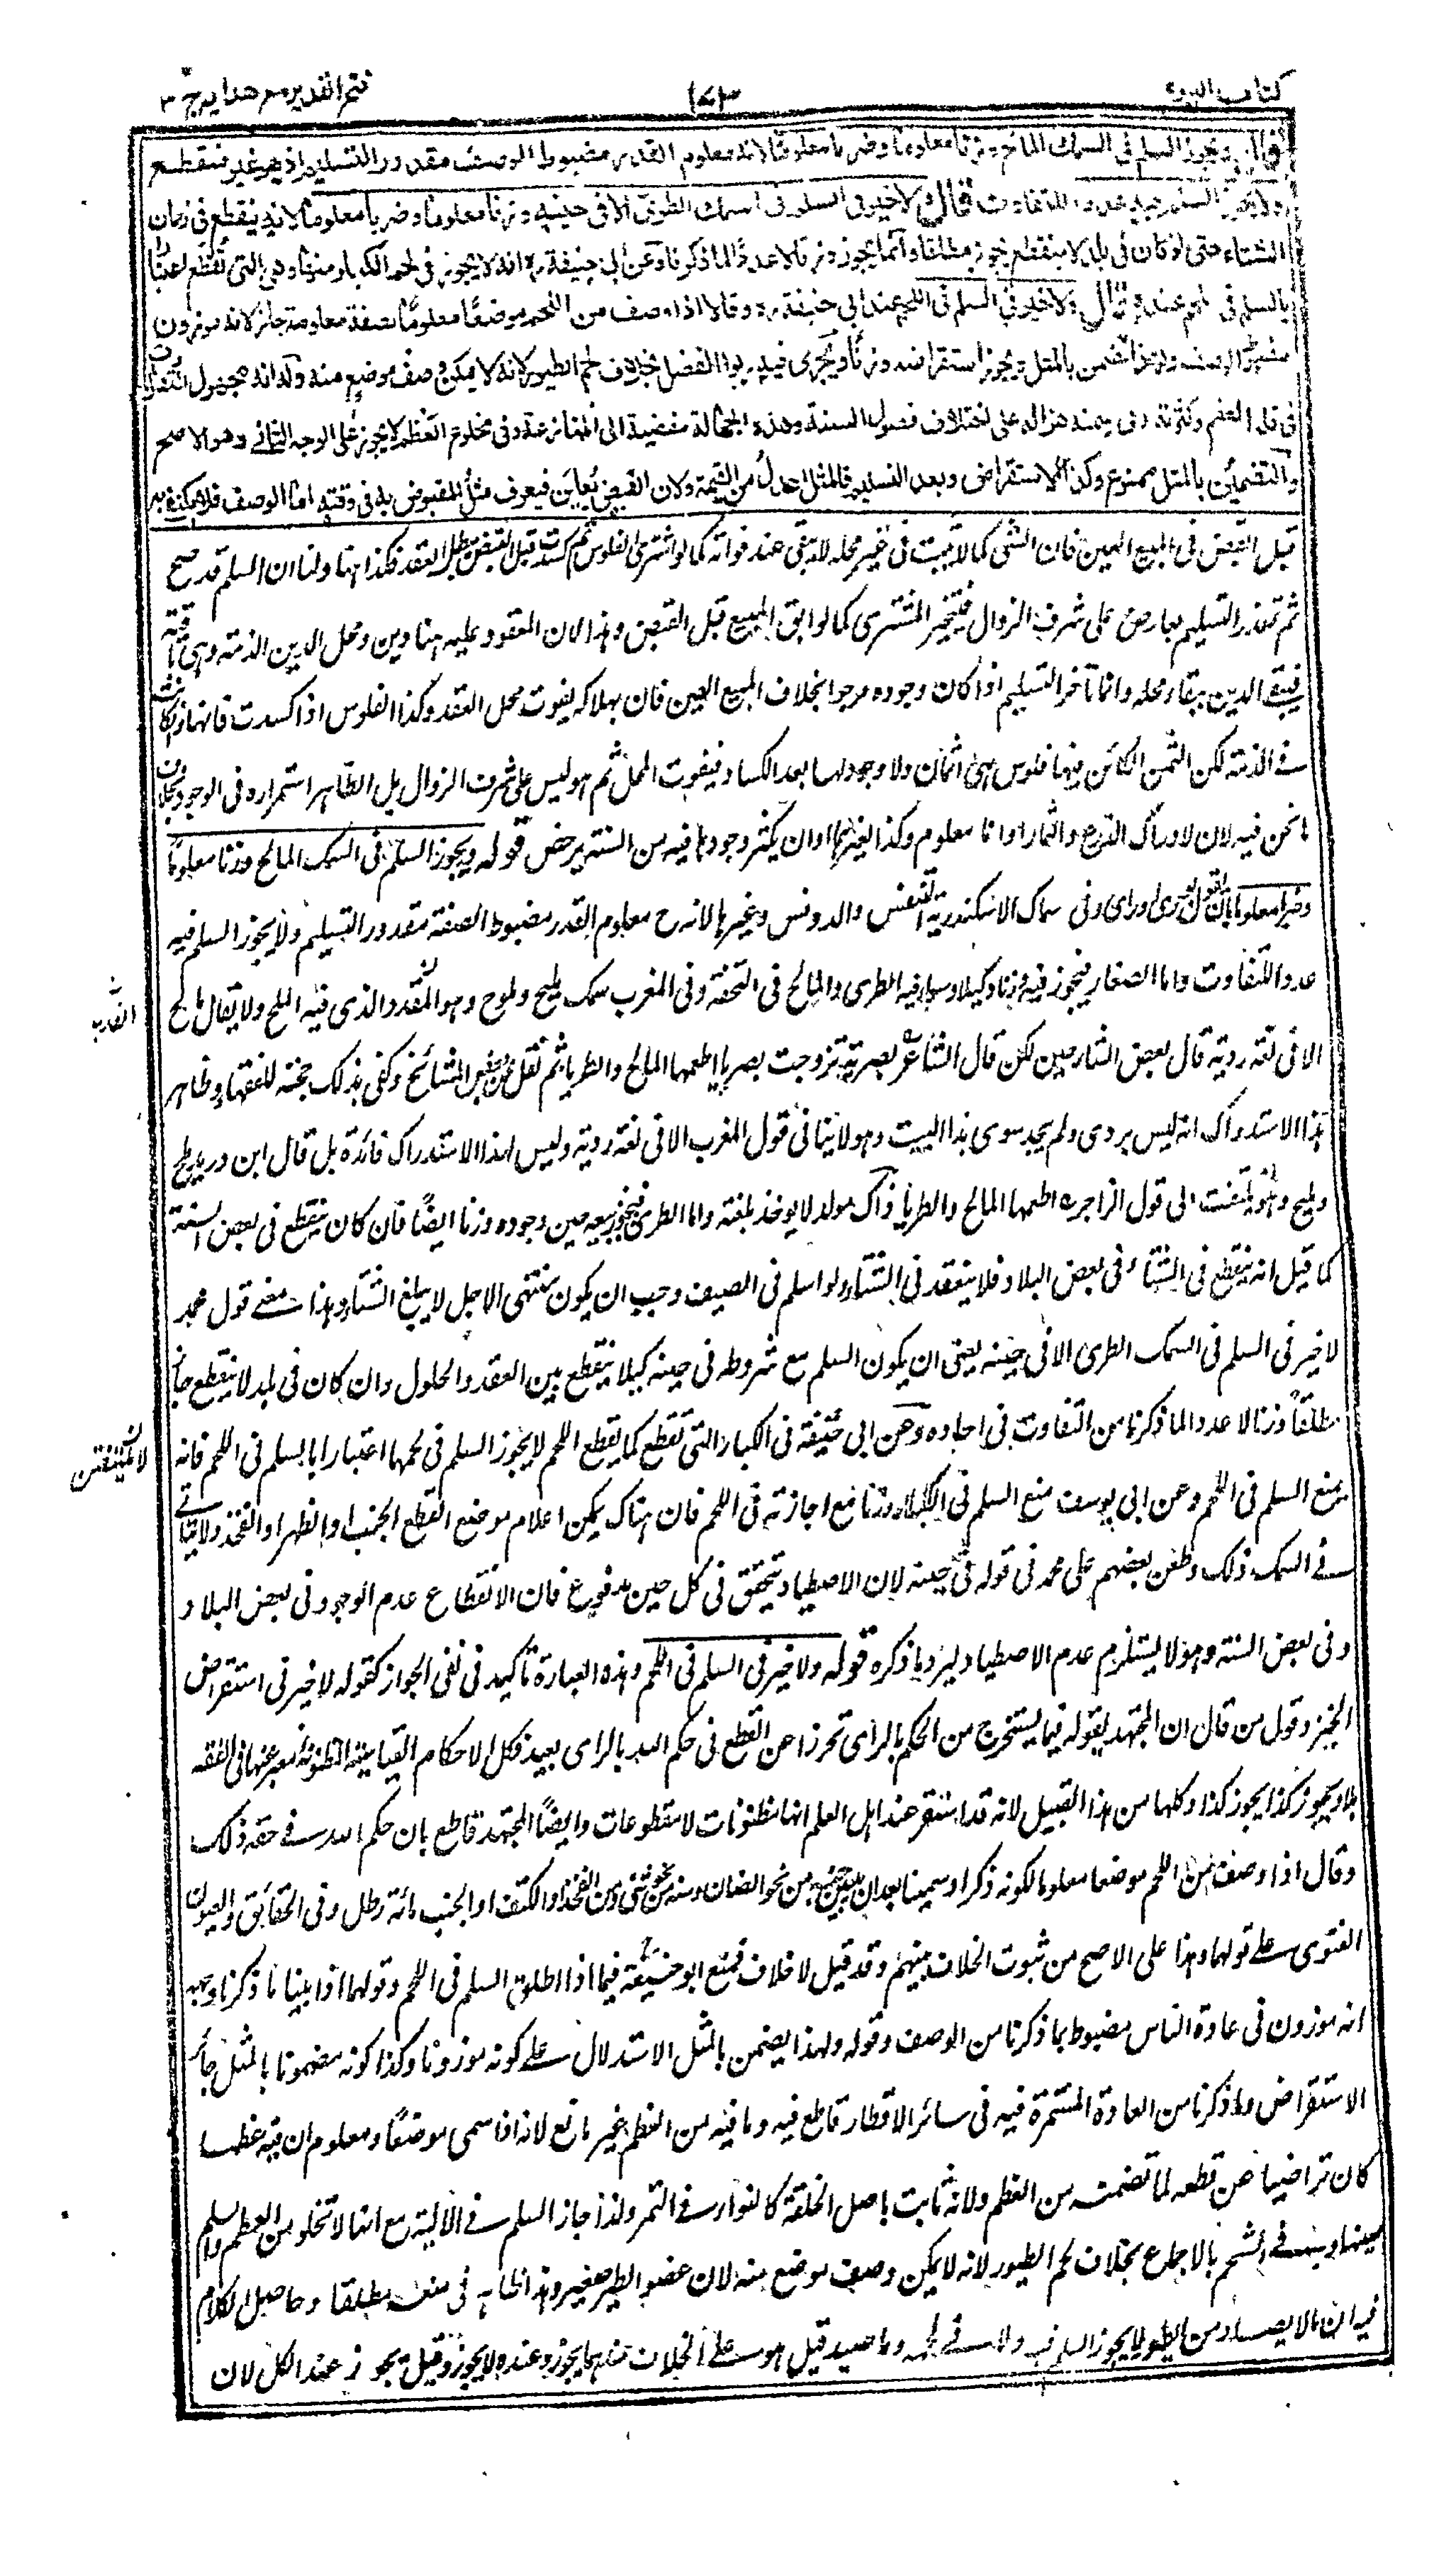 كتاب البيوع
فتح القدير مع هدايه ج ٣
قال ويجوز السلم في السمك المالح وزنا معلوما وضربا معلوما لانه معلوم القدر مضبوط الوصف مقدور التسليم اذ هو غير منقطع
ولا يجوز السلم فيه عددا للتفاوت قال ولا خير في السلم في السمك الطرى الا في حينه وزنا معلوما وضربا معلوما لانه ينقطع في زمان
الشتاء حتى لو كان في بلد لا ينقطع يجوز مطلقا وانما يجوز وزنا لا عددا لما ذكرنا وعن ابي حنيفة رح انه لا يجوز في لحم الكبار منها وهي التي تقطع اعتبارا
بالسلم في اللحم عنده قال ولا خير في السلم في اللحم عند ابي حنيفة رح وقالا اذا وصف من اللحم موضعا معلوما بصفة معلومة جاز لانه موزون
مضبوط الوصف ولهذا يضمن بالمثل ويجوز استقراضه وزنا ويجري فيه ربوا الفضل بخلاف لحم الطيور لانه لا يمكن وصف موضع منه وله انه مجهول للتفاوت
في قلة العظم وكثرته وفي سمنه وهزاله على اختلاف فصول السنة وهذه الجهالة مفضية الى المنازعة وفي مخلوع العظم لا يجوز على الوجه الثاني وهو الاصح
والتضمين بالمثل ممنوع وكذا الاستقراض وبعد التسليم فالمثل اعدل من القيمة ولان القبض يعاين فيعرف مثل المقبوض به في وقته اما الوصف فلا يكتفى به
قبل القبض في المبيع العين فان الشئ كما لا يثبت في غير محله لا يبقى عند فواته كما لو اشترى بالفلوس ثم كسدت قبل القبض يبطل العقد فكذا هنا ولنا ان السلم قد صح
ثم تعذر التسليم بعارض على شرف الزوال فيتخير المشترى كما لو ابق المبيع قبل القبض وهذا لان المعقود عليه هنا دين ومحل الدين الذمة وهي باقية
فيبقى الدين ببقاء محله وانما تأخر التسليم اذا كان وجوده مرجوا بخلاف المبيع العين فان بهلاكه يفوت محل العقد وكذا الفلوس اذا كسدت فانها وان كانت
في الذمة لكن الثمن الكائن فيها فلوس هي اثمان ولا وجود لها بعد الكساد فيفوت المحل ثم هو ليس على شرف الزوال بل الظاهر استمراره في الوجود بخلاف
ما نحن فيه لان لادراك الزرع والثمار اوانا معلوم وكذا لغيرهما اوان يكثر وجودهما فيه من السنة يرخص قوله ويجوز السلم في السمك المالح وزنا معلوما
وضربا معلوما بان يقول بورى او راى وفي سماك الاسكندرية الشفنس والدونس وغيرها لانه ح معلوم القدر مضبوط الصفة مقدور التسليم ولا يجوز السلم فيه
عددا للتفاوت واما الصغار فيجوز فيه وزنا وكيلا وسواء فيه الطرى والمالح في التحفة وفي المغرب سمك مليح ومملوح وهو المقدد الذي فيه الملح ولا يقال مالح
الا في لغة ردية قال بعض الشارحين لكن قال الشاعر بصرية تزوجت بصريا اطعمها المالح والطريا ثم نقل عن بعض المشائخ وكفى بذلك حجة للفقهاء وظاهر
هذا الاستدراك انه ليس بردى ولم يجد سوى هذا البيت وهو لا ينافى قول المغرب الا في لغة ردية وليس لهذا الاستدراك فائدة بل قال ابن دريد ملح
ومليح ولا يلتفت الى قول الراجز اطعمها المالح والطريا ذاك مولد لا يوخذ بلغته واما الطرى فيجوز بيعه حين وجوده وزنا ايضا فان كان ينقطع في بعض السنة
كما قيل انه ينقطع في الشتاء في بعض البلاد فلا ينعقد في الشتاء ولو اسلم في الصيف وجب ان يكون منتهى الاجل لا يبلغ الشتاء وهذا معنى قول محمد
لا خير في السلم في السمك الطرى الا في حينه يعنى ان يكون السلم مع شروطه في حينه كيلا ينقطع بين العقد والحلول وان كان في بلد لا ينقطع جاز
مطلقا وزنا لا عددا لما ذكرنا من التفاوت في احاده وعن ابي حنيفة في الكبار التى تقطع كما يقطع اللحم لا يجوز السلم في لحمها اعتبارا بالسلم في اللحم فانه
يمنع السلم في اللحم وعن ابي يوسف منع السلم في الكبار وزنا مع اجازته في اللحم فان هناك يمكن اعلام موضع القطع الجنب او الظهر او الفخذ ولا يتأتى
في السمك ذلك وطعن بعضهم على محمد في قوله في حينه لان الاصطياد يتحقق في كل حين مدفوع فان الانقطاع عدم الوجود في بعض البلاد
وفي بعض السنة وهو لا يستلزم عدم الاصطياد ليرد ما ذكره قوله ولا خير في السلم في اللحم وهذه العبارة تأكيد في نفي الجواز كقوله لا خير في استقراض
الخبز وقول من قال ان المجتهد يقوله فيما يستخرج من الحكم بالرأى تحرزا عن القطع في حكم الله بالراى بعيد فكل الاحكام القياسية المظنونة معبر عنها في الفقه
بلا يجوز كذا يجوز كذا وكلها من هذا القبيل لانه قد استقر عند اهل العلم انها مظنونات لا مقطوعات وايضا المجتهد قاطع بان حكم الله في حقه ذلك
وقال اذا وصف من اللحم موضعا معلوما لكونه ذكرا وسمينا بعد ان يبين جنسه من نحو الضان وسنه نحو ثنى ومن الفخذ او الكتف او الجنب مائة رطل وفي الحقائق والعيون
الفتوى على قولهما وهذا على الاصح من ثبوت الخلاف بينهم وقد قيل لا خلاف فمنع ابو حنيفة فيما اذا اطلق السلم في اللحم وقولهما اذا بينا ما ذكرنا وجه
انه موزون في عادة الناس مضبوط بما ذكرنا من الوصف وقوله ولهذا يضمن بالمثل الاستدلال على كونه موزونا وكذا كونه مضمونا بالمثل جائز
الاستقراض وما ذكرنا من العادة المستمرة فيه في سائر الاقطار قاطع فيه وما فيه من العظم غير مانع لانه اذا سمى موضعا ومعلوم ان فيه عظما
كان تراضيا عن قطعه لما تضمنه من العظم ولانه ثابت باصل الخلقة كالنوار في التمر ولذا جاز السلم في الالية مع انها لا تخلو من العظم والسلم
فيها وفي الشحم بالاجماع بخلاف لحم الطيور لانه لا يمكن وصف موضع منه لان عضو الطير صغير وهذا ظاهر في منعه مطلقا وحاصل الكلام
فيه ان ما لا يصاد من الطيور لا يجوز السلم فيه ولا في لحمه وما صيد قيل هو على الخلاف عندهما يجوز وعنده لا يجوز وقيل يجوز عند الكل لان